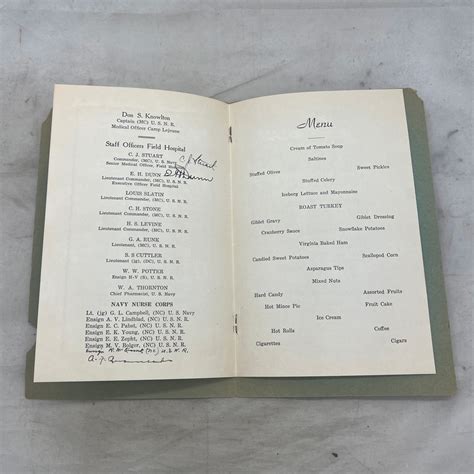 Don S. Knowlton
Captain (MC) U. S. N. R.
Medical Officer Camp Lejeune
Staff Officers Field Hospital
C. J. STUART
Commander, (MC), U. S. Navy
Senior Medical Officer, Field Hospital
C J Stuart
E. H. DUNN
Lieutenant Commander, (MC), U. S. N. R.
Executive Officer Field Hospital
Dunn
LOUIS SLATIN
Lieutenant Commander, (MC) U. S. N. R.
C. H. STONE
Lieutenant Commander, (MC) U. S. N. R.
H. S. LEVINE
Lieutenant, (MC) U. S. N. R.
G. A. RUNK
Lieutenant, (MC) U. S. N. R.
S. S CUTTLER
Lieutenant (jg), (MC) U. S. N. R.
W. W. POTTER
Ensign H-V (S), U. S. N. R.
W. A. THORNTON
Chief Pharmacist, U. S. Navy
NAVY NURSE CORPS
Lt. (jg) G. L. Campbell, (NC) U. S. N. R.
Ensign A. V. Lindblad, (NC) U. S. N. R.
Ensign E. C. Pabst, (NC) U. S. N. R.
Ensign E. K. Young, (NC) U. S. N. R.
Ensign E. E. Zepht, (NC) U. S. N. R.
Ensign M. V. Holger, (NC) U. S. N. R.
Ensign (NC) U. S. N. R.
Menu
Cream of Tomato Soup
Saltines
Stuffed Olives Sweet Pickles
Stuffed Celery
Iceberg Lettuce and Mayonnaise
ROAST TURKEY
Giblet Gravy Giblet Dressing
Cranberry Sauce Snowflake Potatoes
Virginia Baked Ham
Candied Sweet Potatoes Scalloped Corn
Asparagus Tips
Mixed Nuts
Hard Candy Assorted Fruits
Hot Mince Pie Fruit Cake
Ice Cream
Hot Rolls Coffee
Cigarettes Cigars